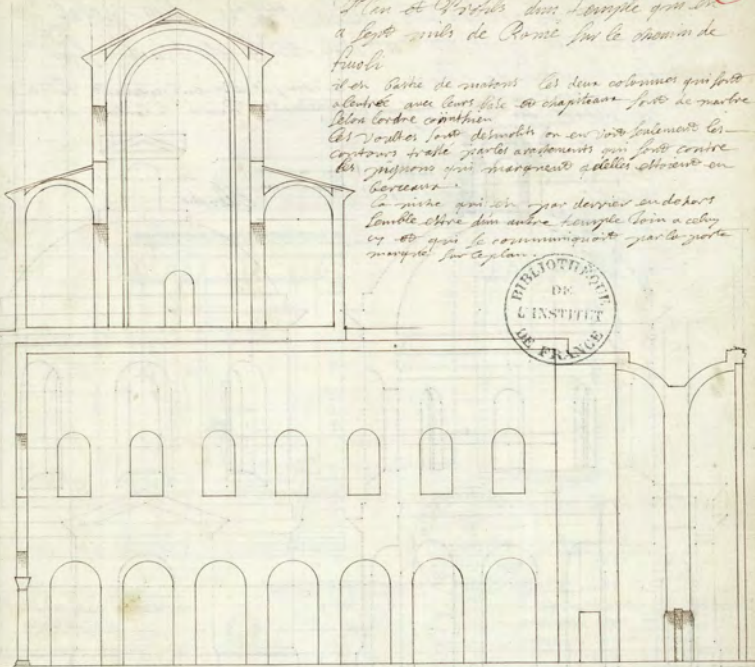 Plan et Profils dun temple qui est
a sept mils de Rome sur le chemin de
tivoli
il est bastie de matons les deux colonnes qui sont
a lentrée avec leurs base et chapiteaux sont de marbre
selon lordre corinthien
les voultes sont desmolits on en voit seulement les
contours trassé par les arachements qui sont contre
les pignons qui marquent quelles estoient en
berceaux.
la niche qui est par derrier en dehors
semble estre dun autre temple join a celuy
cy et qui se communiquoit par la porte
marqué sur le plan.
BIBLIOTHÈQUE
DE
L'INSTITUT
DE FRANCE